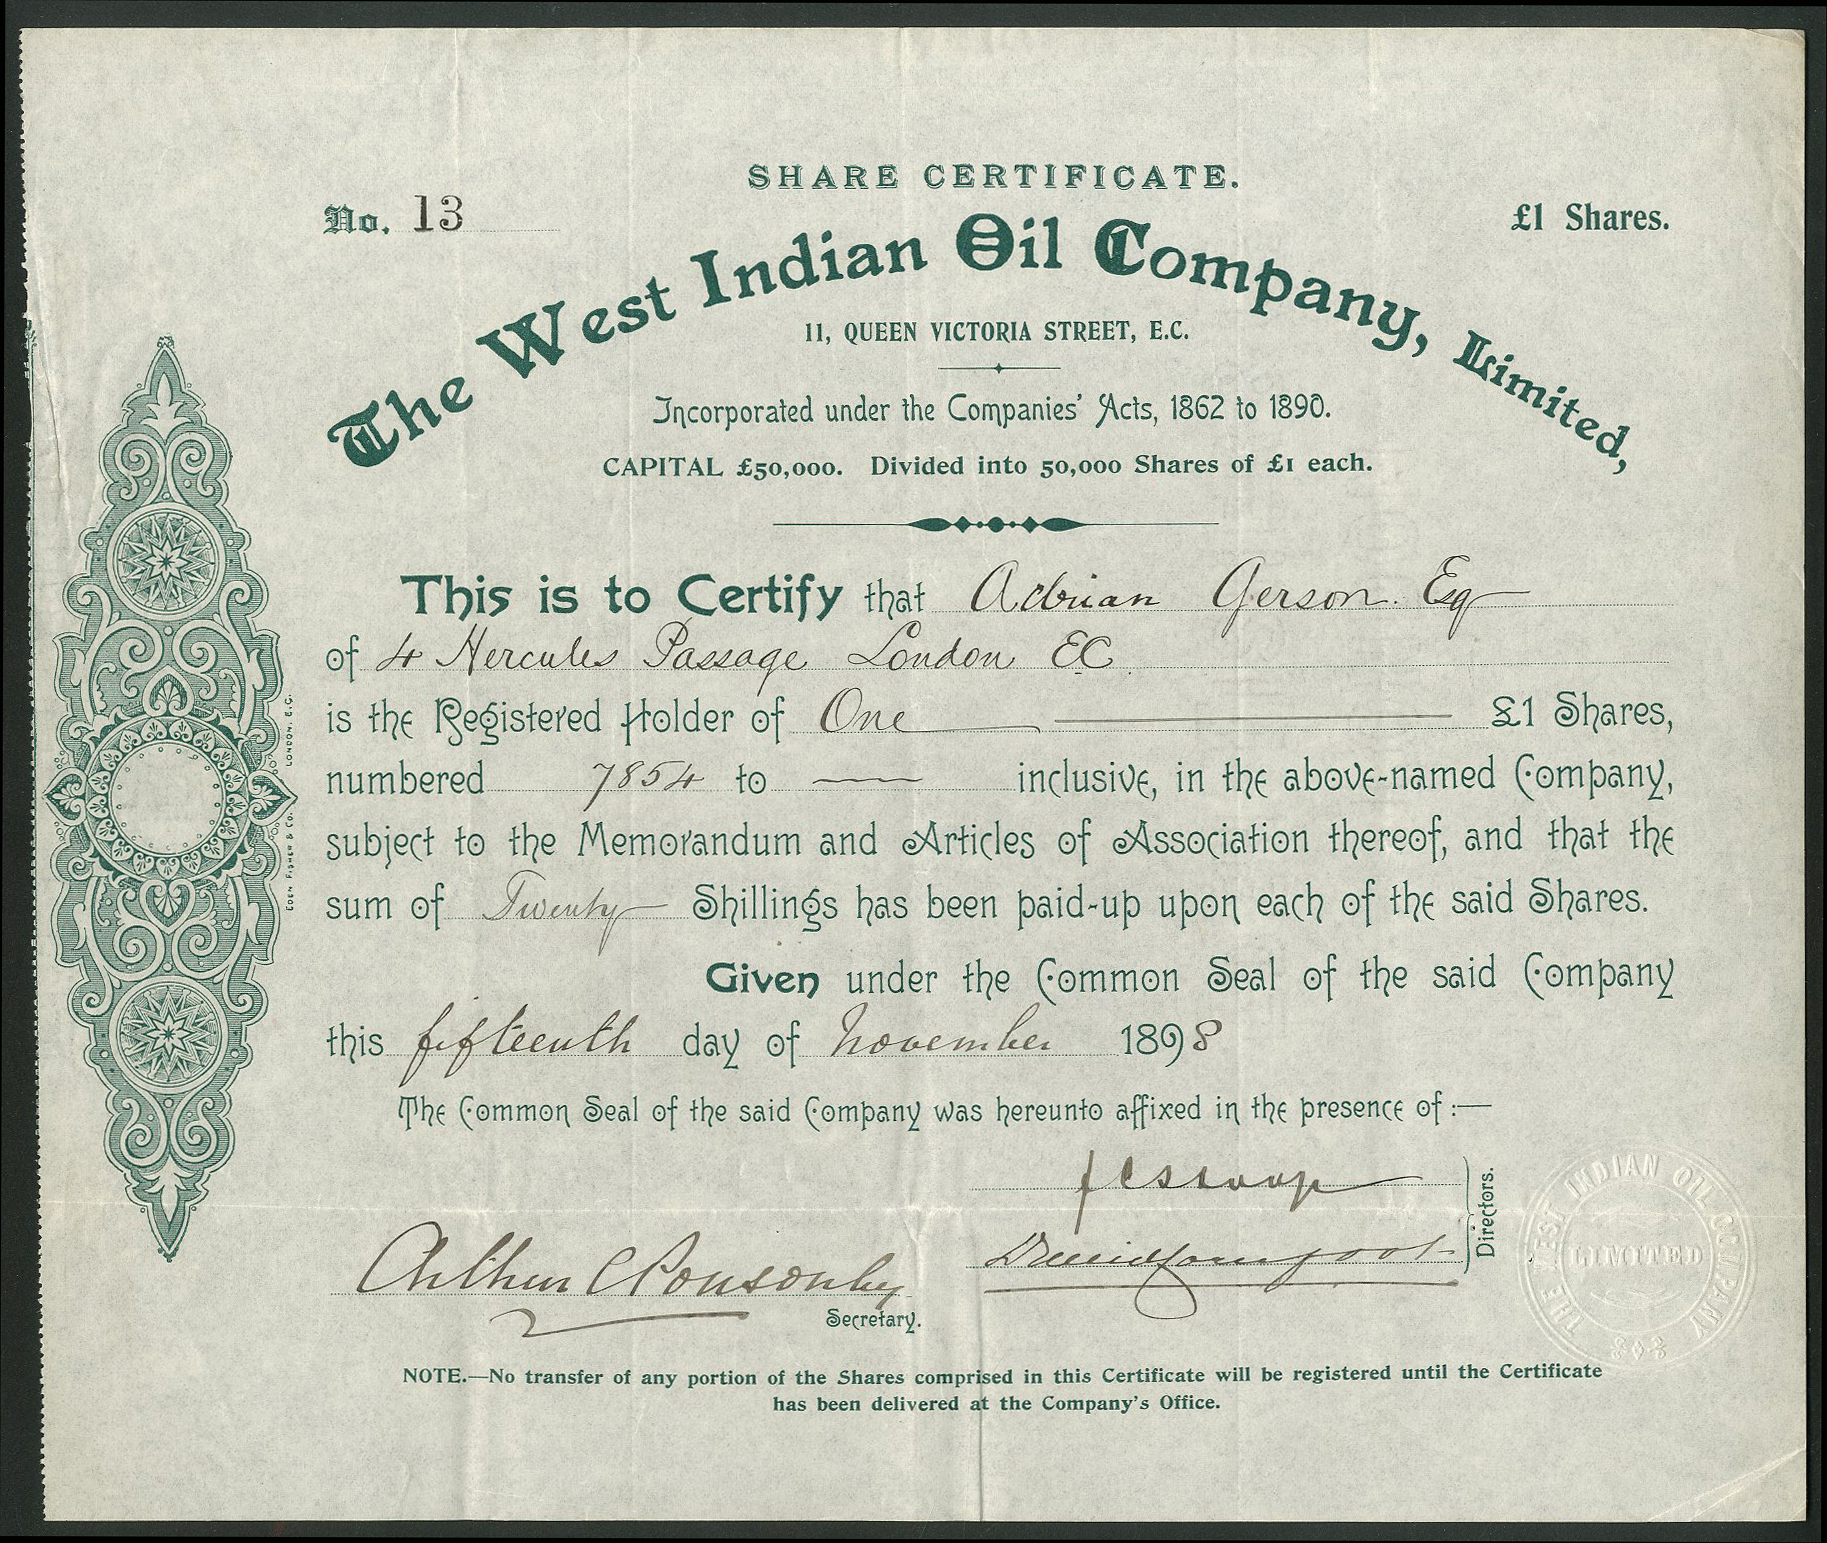 SHARE CERTIFICATE.
No. 13
£1 Shares.
The West Indian Oil Company, Limited,
11, QUEEN VICTORIA STREET, E.C.
Incorporated under the Companies' Acts, 1862 to 1890.
CAPITAL £50,000. Divided into 50,000 Shares of £1 each.
This is to Certify that Adrian Gerson. Esq
of 4 Hercules Passage London EC
is the Registered Holder of One £1 Shares,
numbered 7854 to — inclusive, in the above-named Company,
subject to the Memorandum and Articles of Association thereof, and that the
sum of Twenty Shillings has been paid-up upon each of the said Shares.
Given under the Common Seal of the said Company
this fifteenth day of November 1898
The Common Seal of the said Company was hereunto affixed in the presence of :—
Directors.
Arthur C Ponsonby
Secretary.
THE WEST INDIAN OIL COMPANY
LIMITED
NOTE.—No transfer of any portion of the Shares comprised in this Certificate will be registered until the Certificate
has been delivered at the Company's Office.
EDEN FISHER & CO. LONDON. E.C.